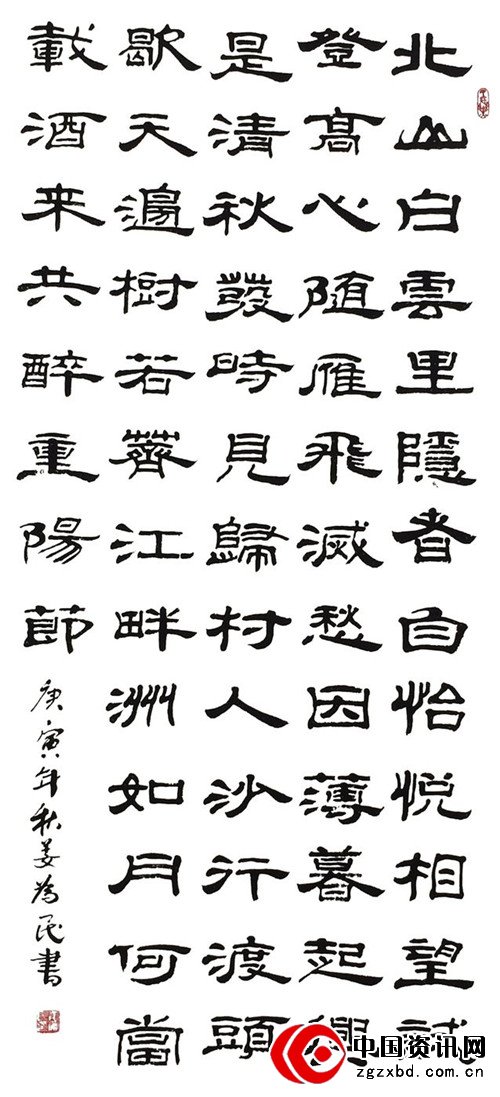 北山白雲里隱者自怡悦相望試
登高心随雁飛滅愁因薄暮起興
是清秋發時見歸村人沙行渡頭
歇天邊樹若薺江畔洲如月何當
載酒来共醉重陽節
庚寅年秋姜為民書
中国资讯网
zgzxbd.com.cn